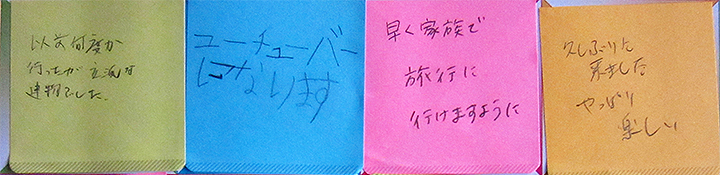 以前何度か
行ったが立派な
建物でした。
ユーチューバー
になります
早く家族で
旅行に
行けますように
久しぶりに
来ました
やっぱり
楽しい